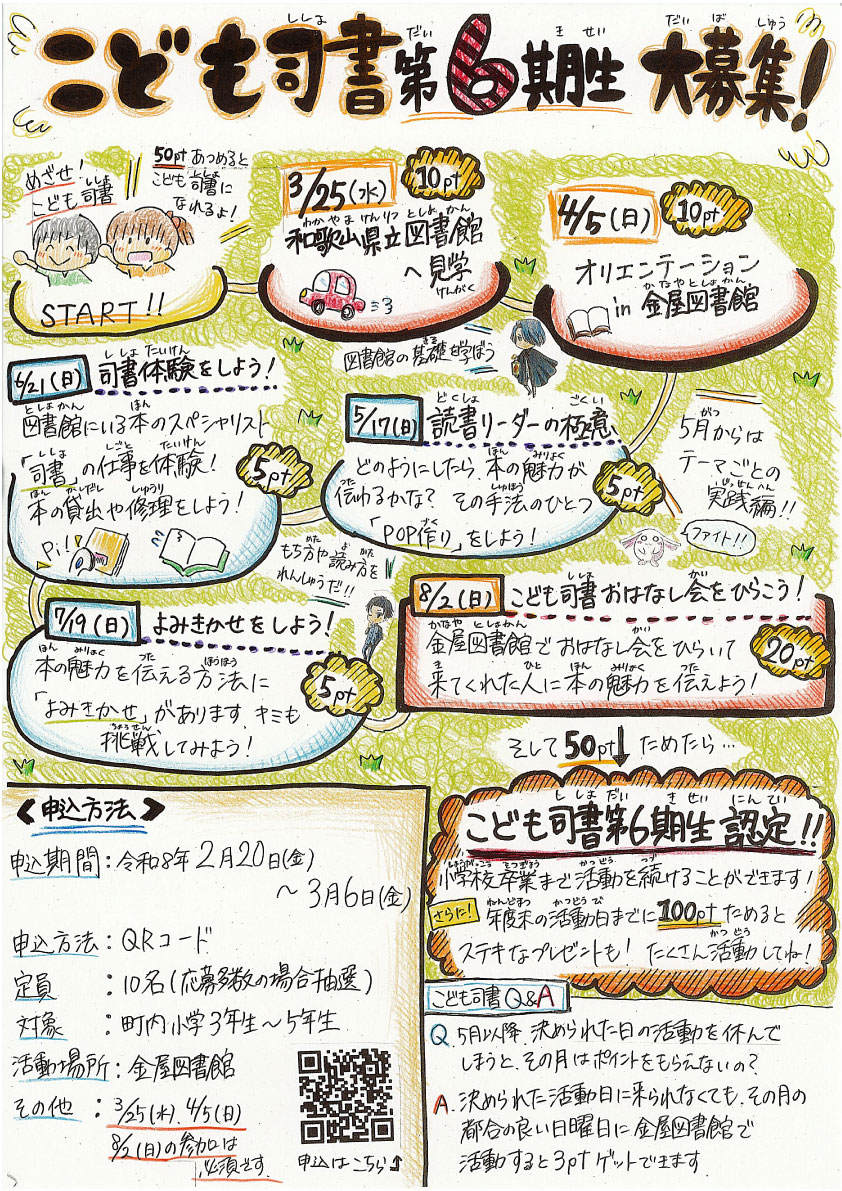 こども司書第6期生 大募集!
めざせ!
こども司書
50ptあつめると
こども司書に
なれるよ!
START!!
3/25(水)
10pt
和歌山県立図書館
へ見学
4/5(日)
10pt
オリエンテーション
in 金屋図書館
図書館の基礎を学ぼう
5月からは
テーマごとの
実践編!!
ファイト!!
5/17(日)
読書リーダーの極意
どのようにしたら、本の魅力が
伝わるかな? その手法のひとつ
「POP作り」をしよう!
5pt
6/21(日)
司書体験をしよう!
図書館にいる本のスペシャリスト
「司書」の仕事を体験!
本の貸出や修理をしよう!
5pt
Pi!
もち方や読み方を
れんしゅうだ!!
7/19(日)
よみきかせをしよう!
本の魅力を伝える方法に
「よみきかせ」があります。キミも
挑戦してみよう!
5pt
8/2(日)
こども司書おはなし会をひらこう!
金屋図書館でおはなし会をひらいて
来てくれた人に本の魅力を伝えよう!
20pt
そして50pt ためたら…
こども司書第6期生 認定!!
小学校卒業まで活動を続けることができます!
さらに!
年度末の活動日までに100ptためると
ステキなプレゼントも! たくさん活動してね!
<申込方法>
申込期間:令和8年2月20日(金)
~3月6日(金)
申込方法:QRコード
定員:10名(応募多数の場合抽選)
対象:町内小学3年生~5年生
活動場所:金屋図書館
その他:3/25(水)、4/5(日)
8/2(日)の参加は
必須です。
申込はこちら
こども司書Q&A
Q. 5月以降、決められた日の活動を休んで
しまうと、その月はポイントをもらえないの?
A. 決められた活動日に来られなくても、その月の
都合の良い日曜日に金屋図書館で
活動すると3ptゲットできます